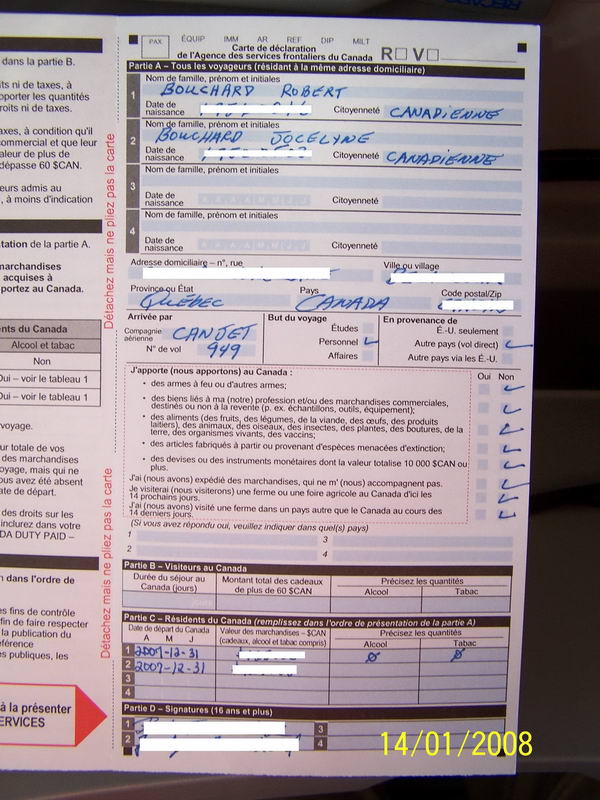 dans la partie B.
ts ni de taxes, à
pporter les quantités
roits ni de taxes.
axes, à condition qu'il
ommercial et que leur
aleur de plus de
dépasse 60 $CAN.
eurs admis au
, à moins d'indication
tation de la partie A.
marchandises
acquises à
portez au Canada.
nts du Canada
Alcool et tabac
Non
Oui – voir le tableau 1
Oui – voir le tableau 1
voyage.
ur totale de vos
des marchandises
oyage, mais qui ne
us avez été absent
ate de départ.
des droits sur les
inclurez dans votre
DA DUTY PAID –
n dans l'ordre de
es fins de contrôle
fin de faire respecter
la publication du
éférence
s publiques, les
à la présenter
SERVICES
Détachez mais ne pliez pas la carte
Détachez mais ne pliez pas la carte
PAX ÉQUIP IMM AR REF DIP MILT
Carte de déclaration
de l'Agence des services frontaliers du Canada R V
Partie A – Tous les voyageurs (résidant à la même adresse domiciliaire)
1 Nom de famille, prénom et initiales
BOUCHARD ROBERT
Date de naissance Citoyenneté CANADIENNE
2 Nom de famille, prénom et initiales
BOUCHARD JOCELYNE
Date de naissance Citoyenneté CANADIENNE
3 Nom de famille, prénom et initiales
Date de naissance A A A A M M J J Citoyenneté
4 Nom de famille, prénom et initiales
Date de naissance A A A A M M J J Citoyenneté
Adresse domiciliaire – n°, rue Ville ou village
Province ou État Pays Code postal/Zip
QUÉBEC CANADA
Arrivée par But du voyage En provenance de
Compagnie aérienne CANJET Études É.-U. seulement
N° de vol 949 Personnel Autre pays (vol direct)
Affaires Autre pays via les É.-U.
J'apporte (nous apportons) au Canada : Oui Non
• des armes à feu ou d'autres armes;
• des biens liés à ma (notre) profession et/ou des marchandises commerciales,
destinés ou non à la revente (p. ex. échantillons, outils, équipement);
• des aliments (des fruits, des légumes, de la viande, des œufs, des produits
laitiers), des animaux, des oiseaux, des insectes, des plantes, des boutures, de la
terre, des organismes vivants, des vaccins;
• des articles fabriqués à partir ou provenant d'espèces menacées d'extinction;
• des devises ou des instruments monétaires dont la valeur totalise 10 000 $CAN ou
plus.
J'ai (nous avons) expédié des marchandises, qui ne m' (nous) accompagnent pas.
Je visiterai (nous visiterons) une ferme ou une foire agricole au Canada d'ici les
14 prochains jours.
J'ai (nous avons) visité une ferme dans un pays autre que le Canada au cours des
14 derniers jours.
(Si vous avez répondu oui, veuillez indiquer dans quel(s) pays)
1 3
2 4
Partie B – Visiteurs au Canada
Durée du séjour au Canada (jours) Montant total des cadeaux de plus de 60 $CAN Précisez les quantités
Alcool Tabac
jours
Partie C – Résidents du Canada (remplissez dans l'ordre de présentation de la partie A)
Date de départ du Canada Valeur des marchandises – $CAN Précisez les quantités
A M J (cadeaux, alcool et tabac compris) Alcool Tabac
1 2007-12-31 Ø Ø
2 2007-12-31
3
4
Partie D – Signatures (16 ans et plus)
1 3
2 4
14/01/2008